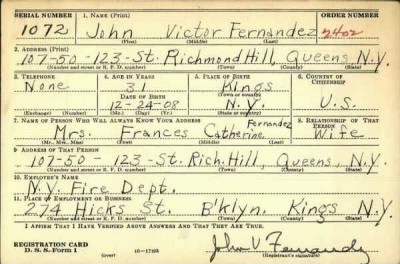 SERIAL NUMBER 1. NAME (Print) ORDER NUMBER
1072 John Victor Fernandez 2402
(First) (Middle) (Last)
2. ADDRESS (Print)
107-50-123-St. Richmond Hill, Queens, N.Y.
(Number and street or R. F. D. number) (Town) (County) (State)
3. TELEPHONE 4. AGE IN YEARS 5. PLACE OF BIRTH 6. COUNTRY OF CITIZENSHIP
None 31 Kings
DATE OF BIRTH (Town or county)
12-24-08 N.Y. U.S.
(Exchange) (Number) (Mo.) (Day) (Yr.) (State or country)
7. NAME OF PERSON WHO WILL ALWAYS KNOW YOUR ADDRESS 8. RELATIONSHIP OF THAT PERSON
Fernandez
Mrs. Frances Catherine Wife
(Mr., Mrs., Miss) (First) (Middle) (Last)
9. ADDRESS OF THAT PERSON
107-50-123-St. Rich. Hill, Queens, N.Y.
(Number and street or R. F. D. number) (Town) (County) (State)
10. EMPLOYER'S NAME
N.Y. Fire Dept.
11. PLACE OF EMPLOYMENT OR BUSINESS
274 Hicks St. B'klyn. Kings N.Y.
(Number and street or R. F. D. number) (Town) (County) (State)
I AFFIRM THAT I HAVE VERIFIED ABOVE ANSWERS AND THAT THEY ARE TRUE.
REGISTRATION CARD John V. Fernandez
D. S. S. Form 1 (over)